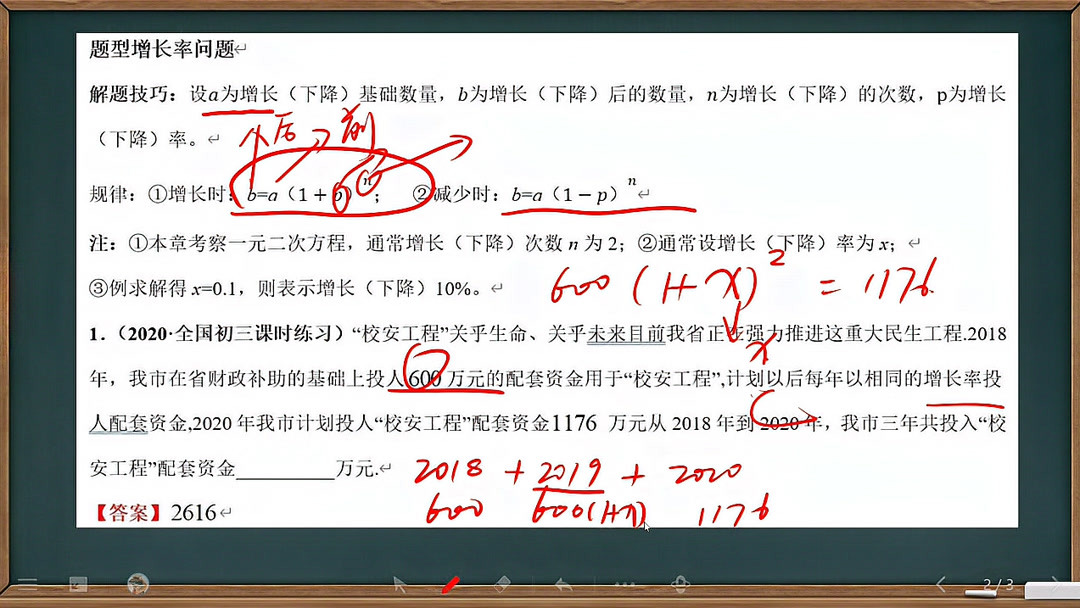 题型增长率问题
解题技巧：设a为增长（下降）基础数量，b为增长（下降）后的数量，n为增长（下降）的次数，p为增长
（下降）率。
后 前
规律：①增长时：b=a（1+p）n； ②减少时：b=a（1−p）n
注：①本章考察一元二次方程，通常增长（下降）次数 n 为 2；②通常设增长（下降）率为 x；
③例求解得 x=0.1，则表示增长（下降）10%。
600 (1+x)2 = 1176
1.（2020·全国初三课时练习）“校安工程”关乎生命、关乎未来目前我省正在强力推进这重大民生工程.2018
x
年，我市在省财政补助的基础上投人600 万元的配套资金用于“校安工程”,计划以后每年以相同的增长率投
人配套资金,2020 年我市计划投人“校安工程”配套资金1176 万元从 2018 年到 2020 年，我市三年共投入“校
安工程”配套资金__________万元.
2018 + 2019 + 2020
600 600(1+x) 1176
【答案】2616
2/3